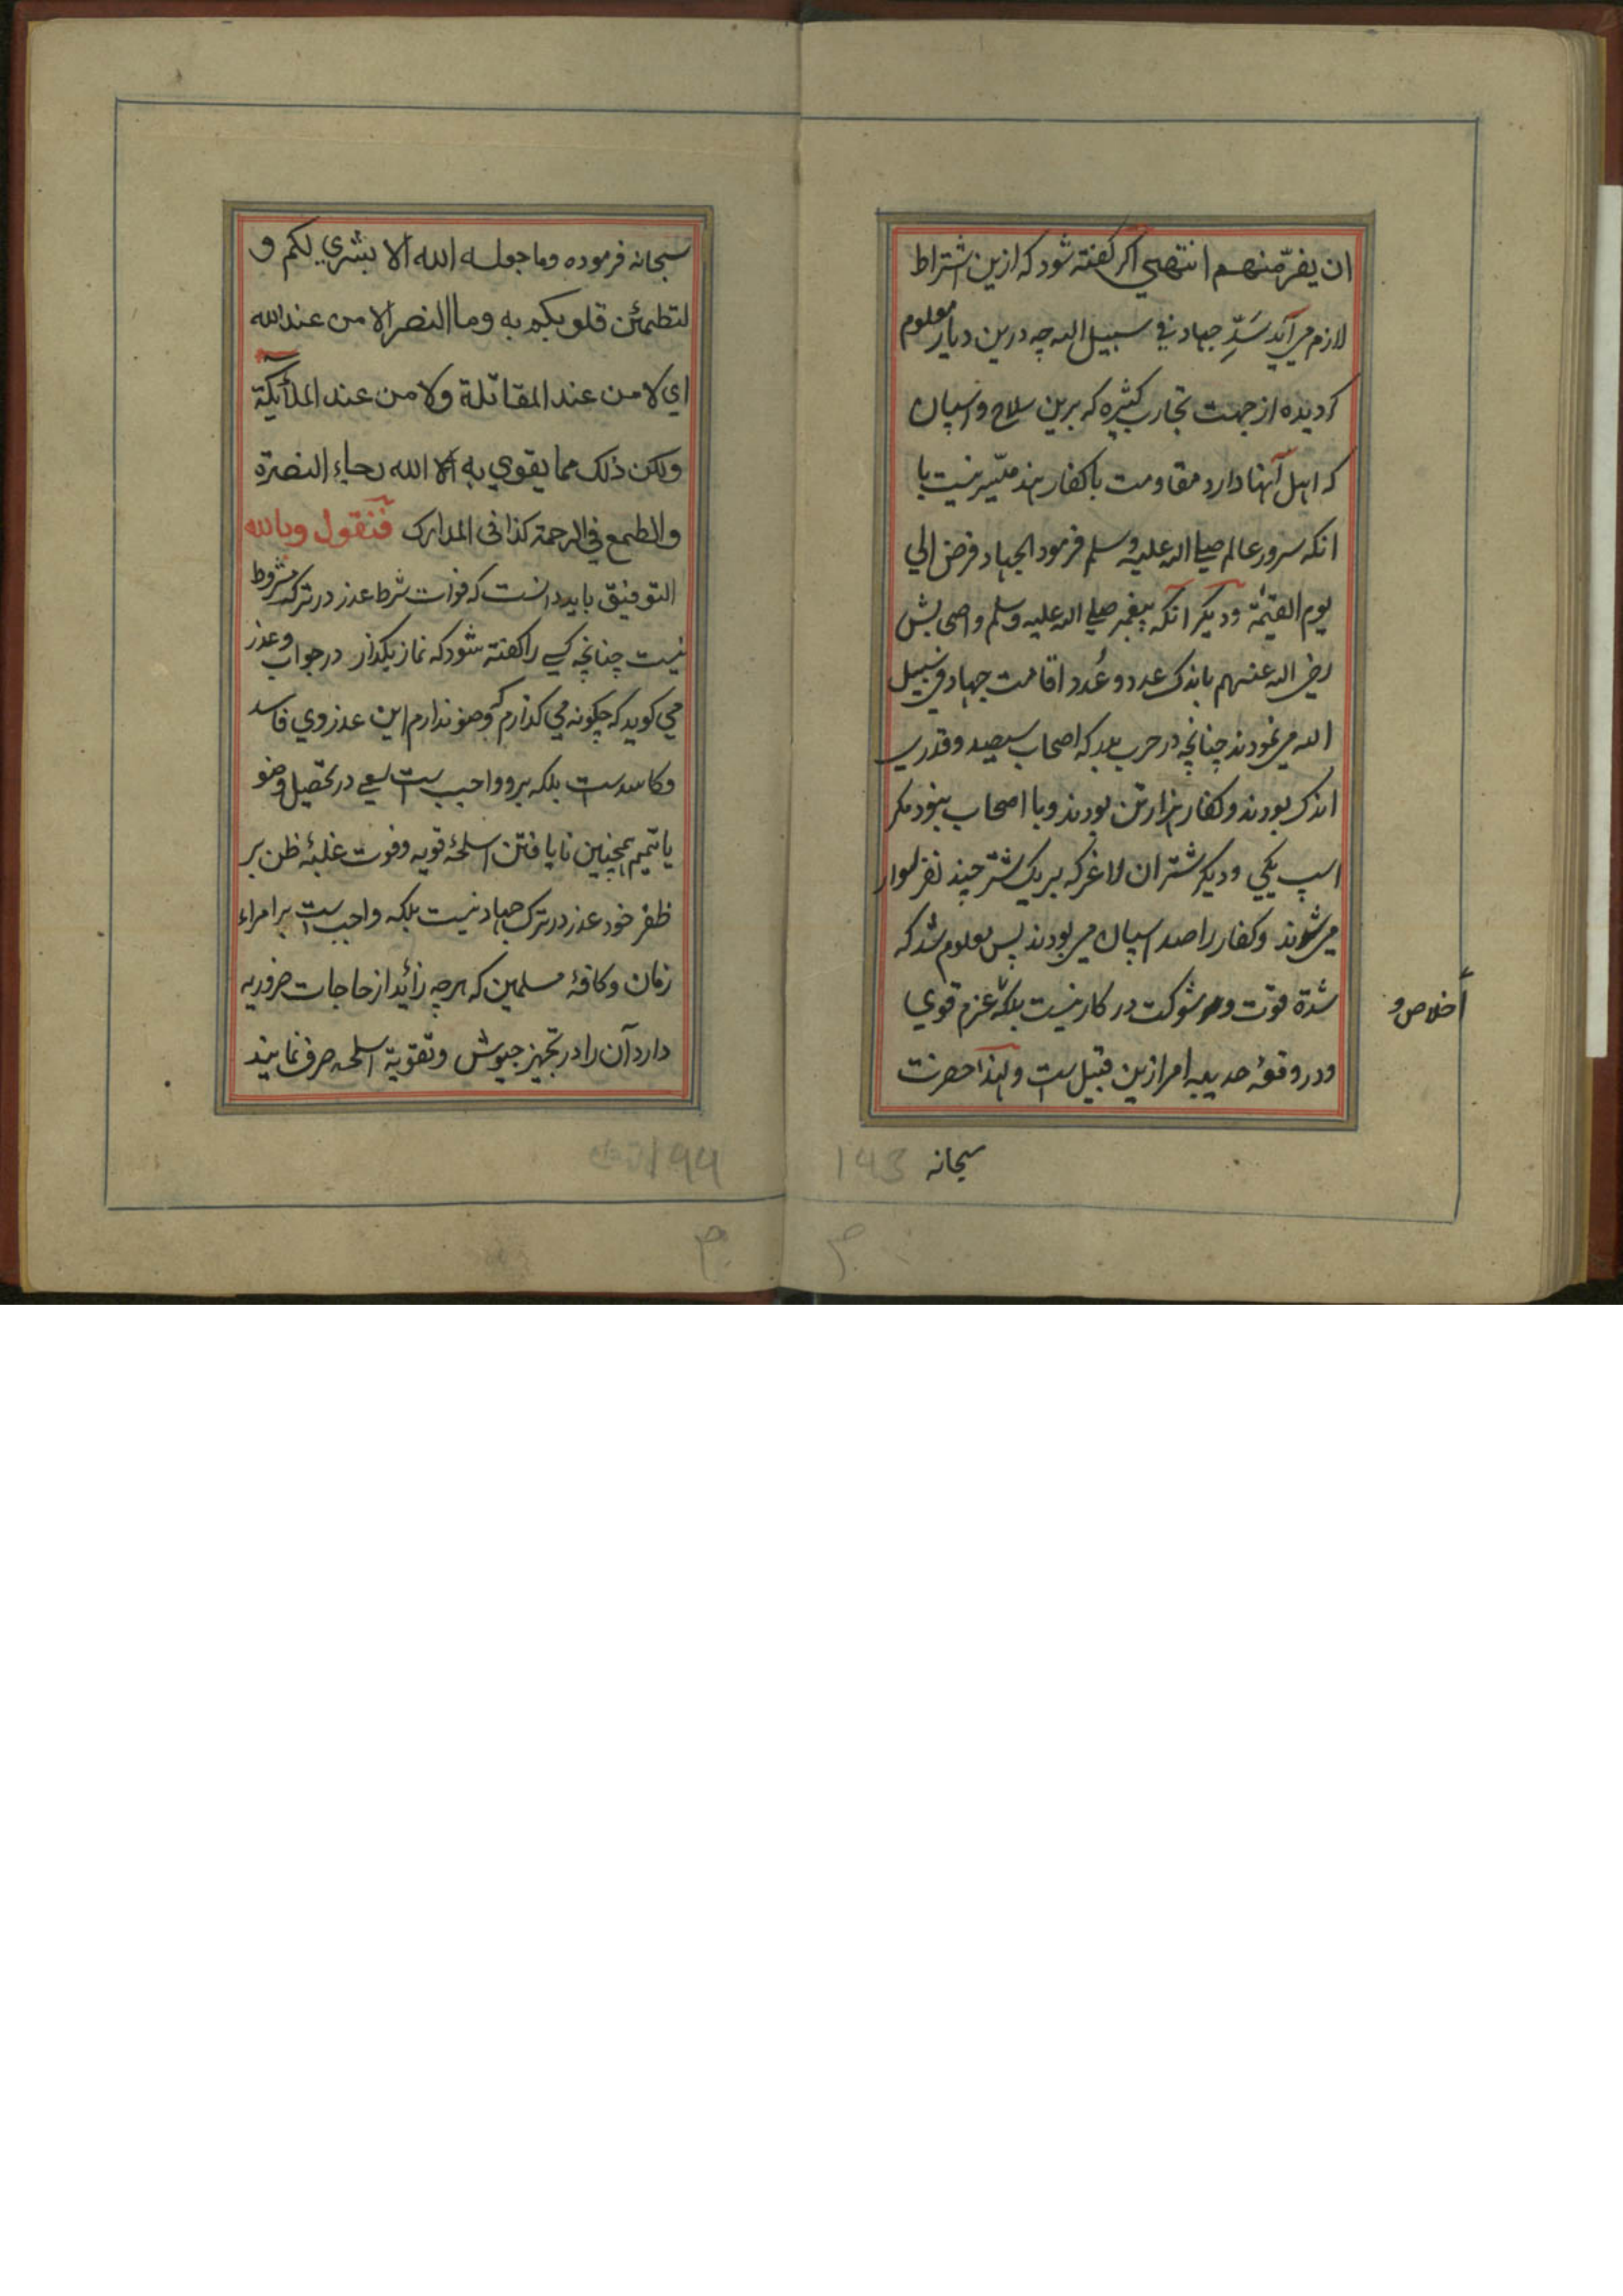 ان يفرّ منهم انتهي اكر كفته شود كه ازين اشتراط
لازم مي آيد سَدِّ جهاد في سبيل الله چه درين ديار معلوم
كرديده از جهت تجارب كثيره كه برين سلاح و اسپان
كه اهل آنها دارد مقاومت با كفار هند ميّسر نيست با
انكه سرور عالم صلي الله عليه وسلم فرمود الجهاد فرض الي
يوم القيٰمة وديكر انكه پيغمبر صلي الله عليه وسلم واصحابش
رضي الله عنهم باندك عدد و عُدد اقامت جهاد في سبيل
الله مي نمودند چنانچه در حرب بدر كه اصحاب سيصد وقدري
اندك بودند وكفار هزار تن بودند وبا اصحاب نبود مكر
اسپ يكي وديكر شتران لاغر كه بر يك شتر چند نفر سوار
مي شوند وكفار را صد اسپان مي بودند پس معلوم شد كه
شدة قوت و شوكت در كار نيست بلكه عزم قوي
اخلاص و
ودر وقعۀ حديبيه امر ازين قبيل ست ولهذا حضرت
سبحانه
143
سبحانه فرموده وما جعله الله الا بشري لكم و
لتطمئن قلوبكم به وما النصر الا من عند الله
اي لا من عند المقاتلة ولا من عند الملآئكة
ولكن ذلك مما يقوي به الله رجاء النصرة
والطمع في الرحمة كذا في المدارك فنقول وبالله
التوفيق بايد دانست كه فوات شرط عذر در ترك مشروط
نيست چنانچه كسي را كفته شود كه نماز بكذار در جواب وعذر
مي كويد كه چكونه مي كذارم كه وضو ندارم اين عذر وي فاسد
وكاسد ست بلكه برو واجب ست سعي در تحصيل وضو
يا تيمم همچنين نا يافتن اسلحۀ قويه وفوت غلبۀ ظن بر
ظفر خود عذر در ترك جهاد نيست بلكه واجب ست بر امراء
زمان وكافۀ مسلمين كه هر چه زائد از حاجات ضروريه
دارد آن را در تجهيز جيوش وتقوية اسلحه صرف نمايند